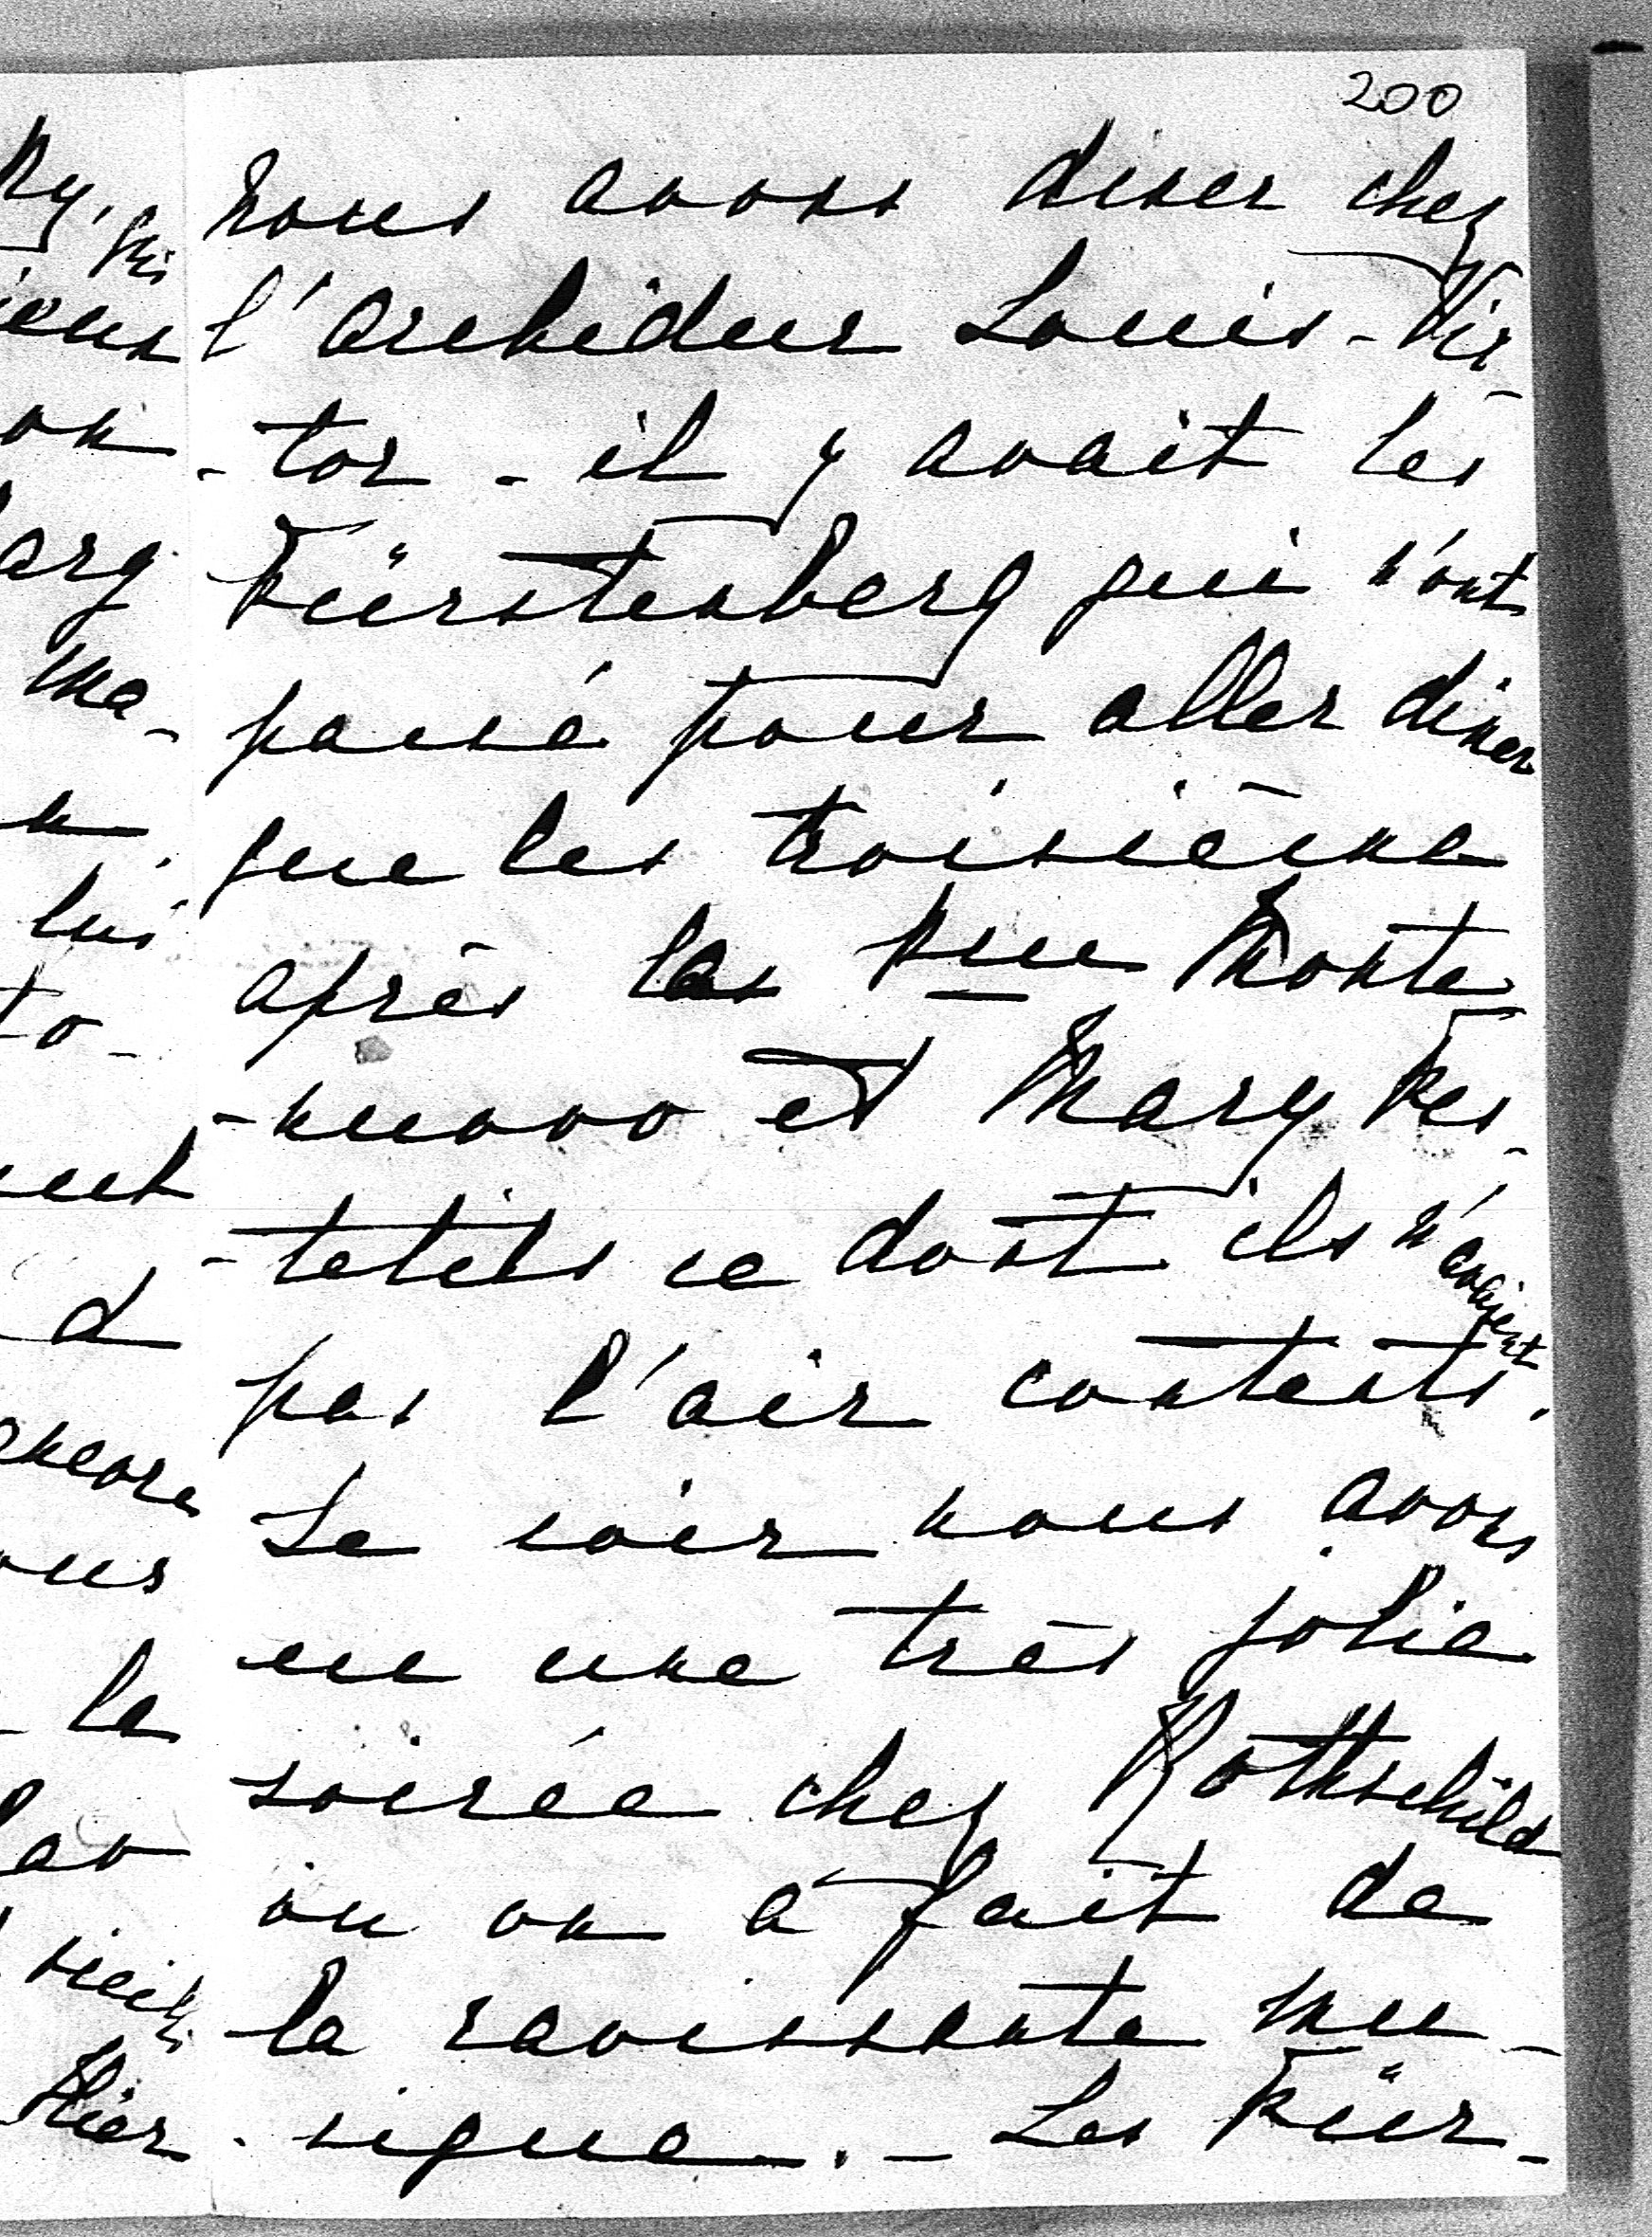 200
nous avons diner chez
l'archiduc Louis-Vic-
-tor - il y avait les
Fürstenberg qui n'ont
passé pour aller diner
que les troisième
après les Pcé Monte
-nuovo et Mary Fes-
-tetits ce dont ils n'avaient
pas l'air contents.
Le soir nous avons
eu une très jolie
soirée chez Rothschild
ou on a fait de
la ravissante mu-
-sique. - Les Für-
ma-
lui
to-
encore
la
Hier